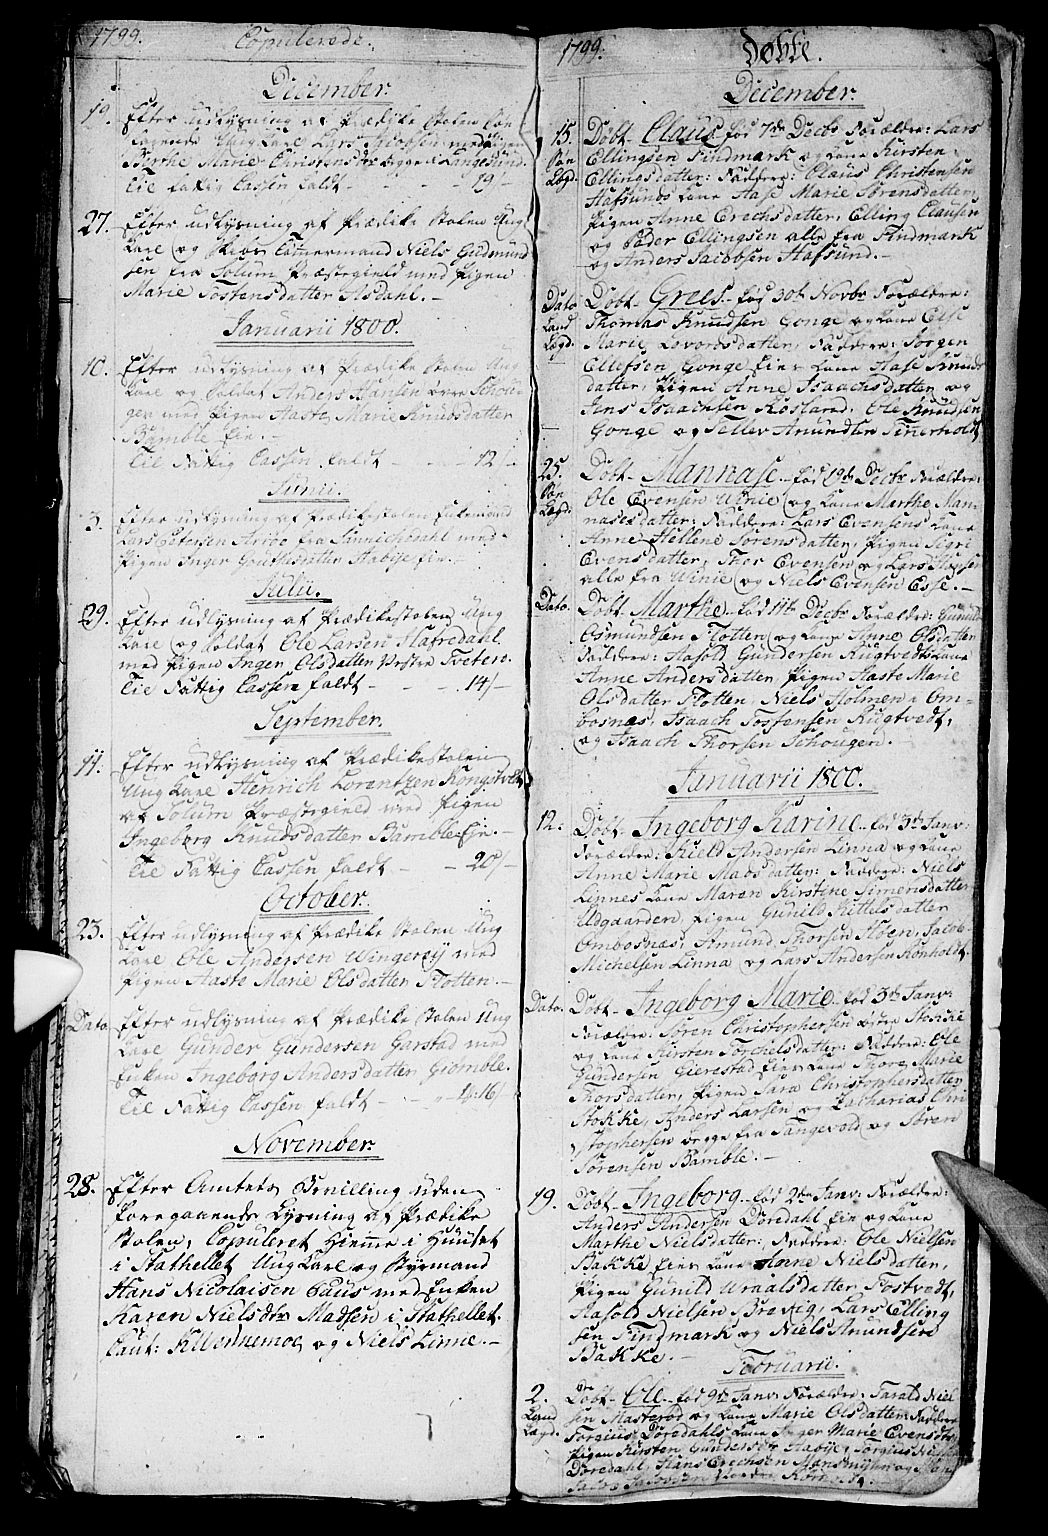 1799. Copulerede.
December.
19. Efter udlysning af Prædike Stolen
Lars Jacobsen med Pigen
Berthe Marie Christensdr begge i Langesund.
Til fattig Cassen faldt - - - 19/-
27. Efter udlysning af Prædike Stolen Ung
Karl og Tømermand Niels Gudmund
sen fra Solum Præstegield med Pigen
Marie Tostensdatter Asdahl.-
Januarii 1800.
10. Efter udlysning af Prædike Stolen Ung
Karl og Soldat Anders Hansen
med Pigen Aaste Marie Knudsdatter
Bamble Eie.-
Til Fattig Cassen faldt - - - 12/-
Junii.
3. Efter udlysning af Prædikestolen Enkemand
Lars Petersen Aröe fra Sannichdahl med
Pigen Inger Gouthesdatter Aabye Eie.-
Julii.
29. Efter udlysning af Prædikestolen Ung
Karl og Soldat Ole Larsen Hafredahl
med Pigen Inger Olsdatter Vestre Tveten.
Til Fattig Cassen faldt - - - 14/-
September.
11. Efter udlysning af Prædikestolen
Ung Karl Henrich Lorentzen Kongstvet
af Solum Præstegield med Pigen
Ingeborg Knudsdatter Bamble Eie.-
Til Fattig Cassen faldt - - 20/-
October.
23. Efter udlysning af Prædike Stolen Ung
Karl Ole Andersen Wingereÿ med
Pigen Aaste Marie Olsdatter Flotten.-
Dato Efter udlysning af Prædike Stolen Ung
Karl Gunder Gundersen Garstad med
Enken Ingeborg Andersdatter Giomble.
Til Fattig Cassen faldt - - 16/
November.
28. Efter Amtets Bevilling uden
foregaaende Lysning af Prædike
Stolen, Copuleret Hiemme i Huuset
i Stathellet Ung Karl og Styrmand
Hans Nicolaisen Caus med Enken
Karen Nielsdr Madsen i Stathellet.
Caut: K Wennemoe og Niels Linne.-
1799. Døbte.
December.
15. Døbt Claus fød 7de Decbr Forældre: Lars
Ellingsen Findmark og Kone Kirsten
Ellingsdatter: Faddere: Claus Christensen
Hafsunds Kone Aase Marie Sørensdatter,
Pigen Anne Erechsdatter, Elling Clausen
og Peder Ellingsen alle fra Findmark
og Anders Jacobsen Hafsund.-
Dato Døbt Grees fød 30t Novbr Forældre:
Thomas Knudsen Gonge og Kone Else
Marie Levordsdatter, Faddere: Jørgen
Ellefsen Gonge Eies Kone Aase Knuds
datter, Pigen Anne Isaachsdatter og
Jens Isaachsen Rosland, Ole Knudsen
Gonge og Tellev Amundsen Tinerholdt
25. Døbt Mannase fød 19de Decbr Forældre:
Ole Evensen Winie og Kone Marthe Man-
nasesdatter: Faddere: Lars Evensens Kone
Anne Hellene Sørensdatter, Pigen Sigri
Evensdatter, Thor Evensen og Lars Hansen
alle fra Winie og Niels Evensen Esse.-
Dato. Døbt Marthe fød 11te Decbr Forældre: Gunild
Osmundsen Flotten og Kone Anne Olsdatter
Faddere: Aasold Gundersen Rugtvedts Kone
Anne Andersdatter Pigen Aaste Marie
Olsdatter Flotten, Niels Holmen i Om-
bosnæs, Isaach Tostensen Rugtvedt,
og Isaach Thorsen Schougen.
Januarii 1800.
12. Døbt Ingeborg Karine fød 3de Janv:
Forældre: Kield Andersen Linna og Kone
Anne Marie Madsdatter: Faddere: Niels
Linnes Kone Maren Kirstine Simensdatter
Udgaarden, Pigen Gunild Kittelsdatter
Ombosnæs, Amund Thorsen Høen, Jacob
Michelsen Linna og Lars Andersen Rønholdt.
Dato. Døbt Ingeborg Marie fød 3de Janv:
Forældre: Søren Christophersen østre Stokke
og Kone Kirsten Torchelsdatter: Faddere: Ole
Gundersen Gierestad Eies Kone Thore Marie
Thorsdatter, Pigen Sara Christophersdatter
Stokke, Anders Larsen og Zacharias Chri
stophersen begge fra Tangevold og Søren
Sørensen Bamble.-
19. Døbt Ingeborg fød 2den Janv: Forældre:
Anders Andersen Døredahl Eie og Kone
Marthe Nielsdatter: Faddere: Ole Nielsen
Bakke Eies Kone Anne Nielsdatter,
Pigen Gunild Wraalsdatter Tostvedt,
Aasold Nielsen Brevig, Lars Elling
sen Findmark og Niels Amundsen
Bakke.-
Februarii.
2. Døbt Ole fød 9de Janv: Forældre: Tarald Niel
sen Masterød og Kone Marie Olsdatter Faddere
Torgius Døredahls Kone Inger Marie Evensdtr,
Pigen Kirsten Gundersdr Aabye, Torgius Nielsen
Døredahl, Hans Erechsen